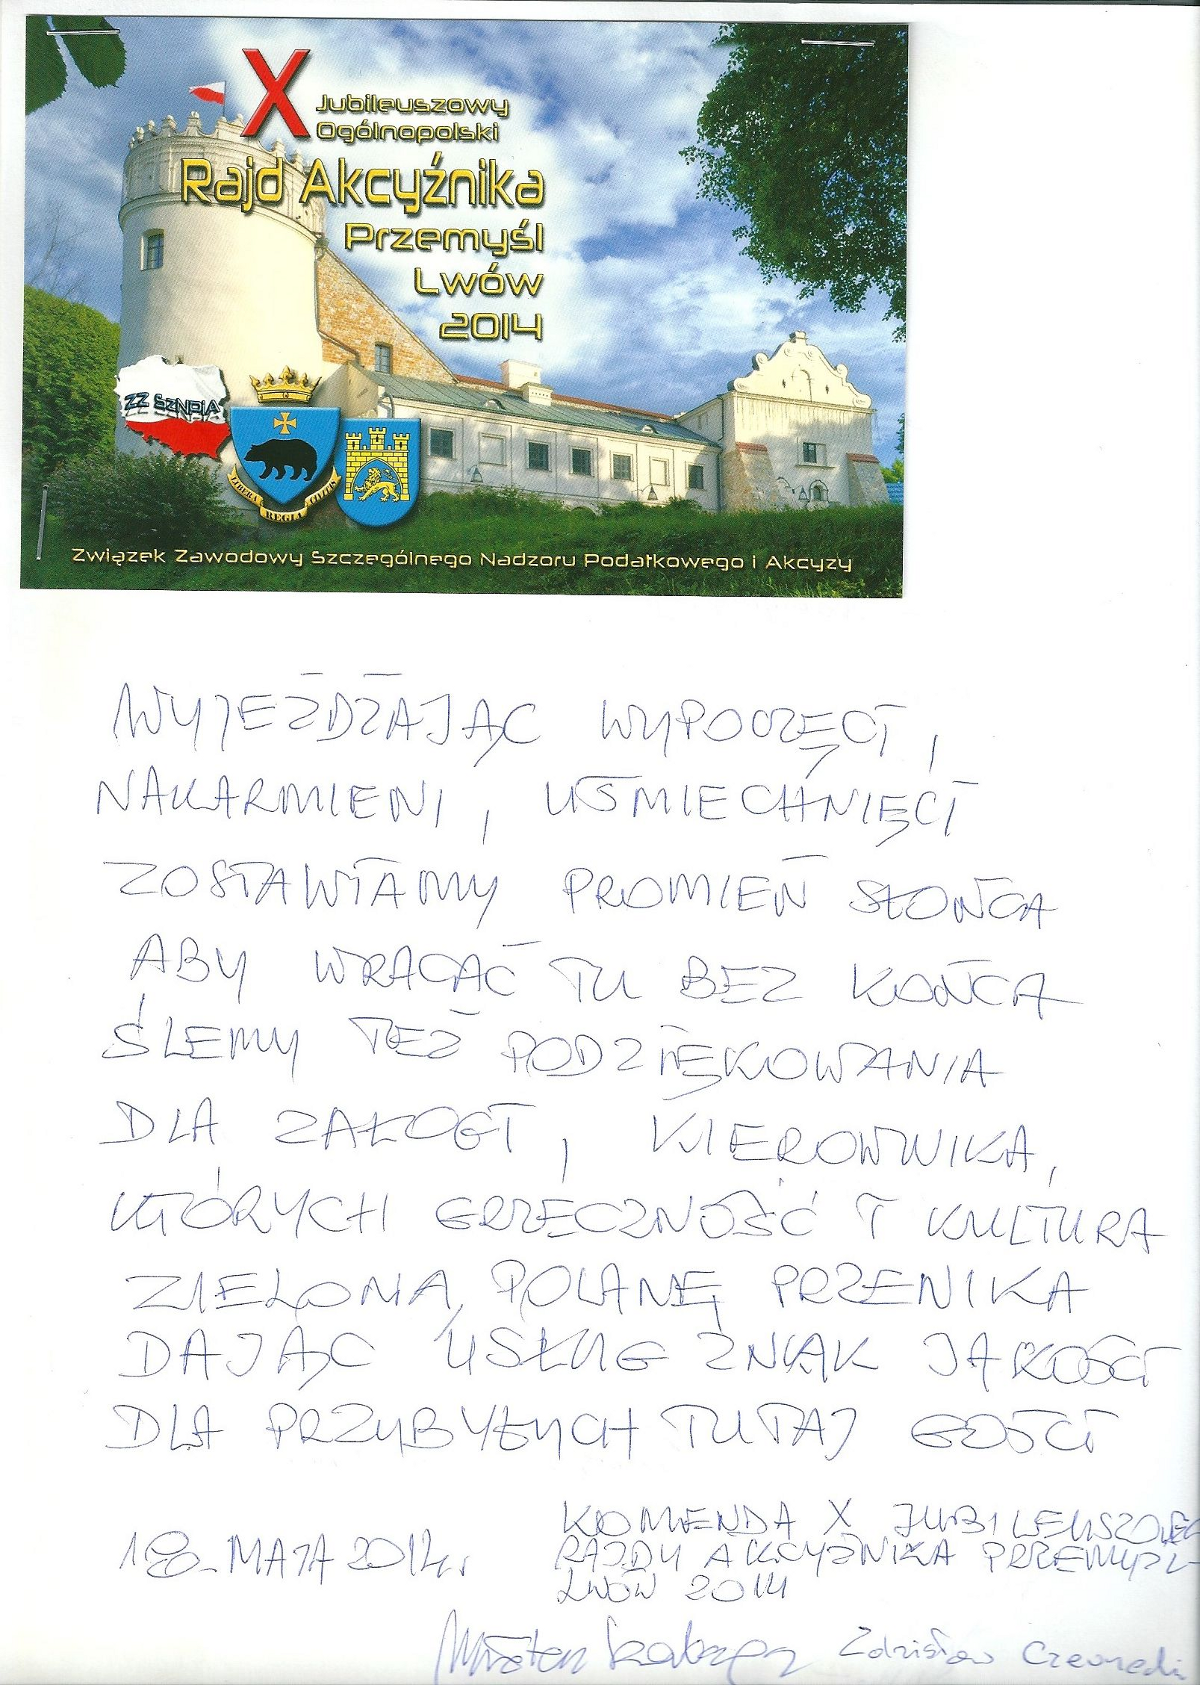 X Jubileuszowy
Ogólnopolski
Rajd Akcyźnika
Przemyśl
Lwów
2014
ZZ SzNPiA
LIBERA REGIA CIVITAS
Związek Zawodowy Szczególnego Nadzoru Podatkowego i Akcyzy
WYJEŻDŻAJĄC WYPOCZĘCI,
NAKARMIENI, UŚMIECHNIĘCI
ZOSTAWIAMY PROMIEŃ SŁOŃCA
ABY WRACAĆ TU BEZ KOŃCA
ŚLEMY TEŻ PODZIĘKOWANIA
DLA ZAŁOGI, KIEROWNIKA,
KTÓRYCH GRZECZNOŚĆ I KULTURA
ZIELONĄ POLANĘ PRZENIKA
DAJĄC USŁUG ZNAK JAKOŚCI
DLA PRZYBYŁYCH TUTAJ GOŚCI
18. MAJA 2014r.
KOMENDA X JUBILEUSZOWEG
RAJDU AKCYŹNIKA PRZEMYŚL-
LWÓW 2014
Zdzisław